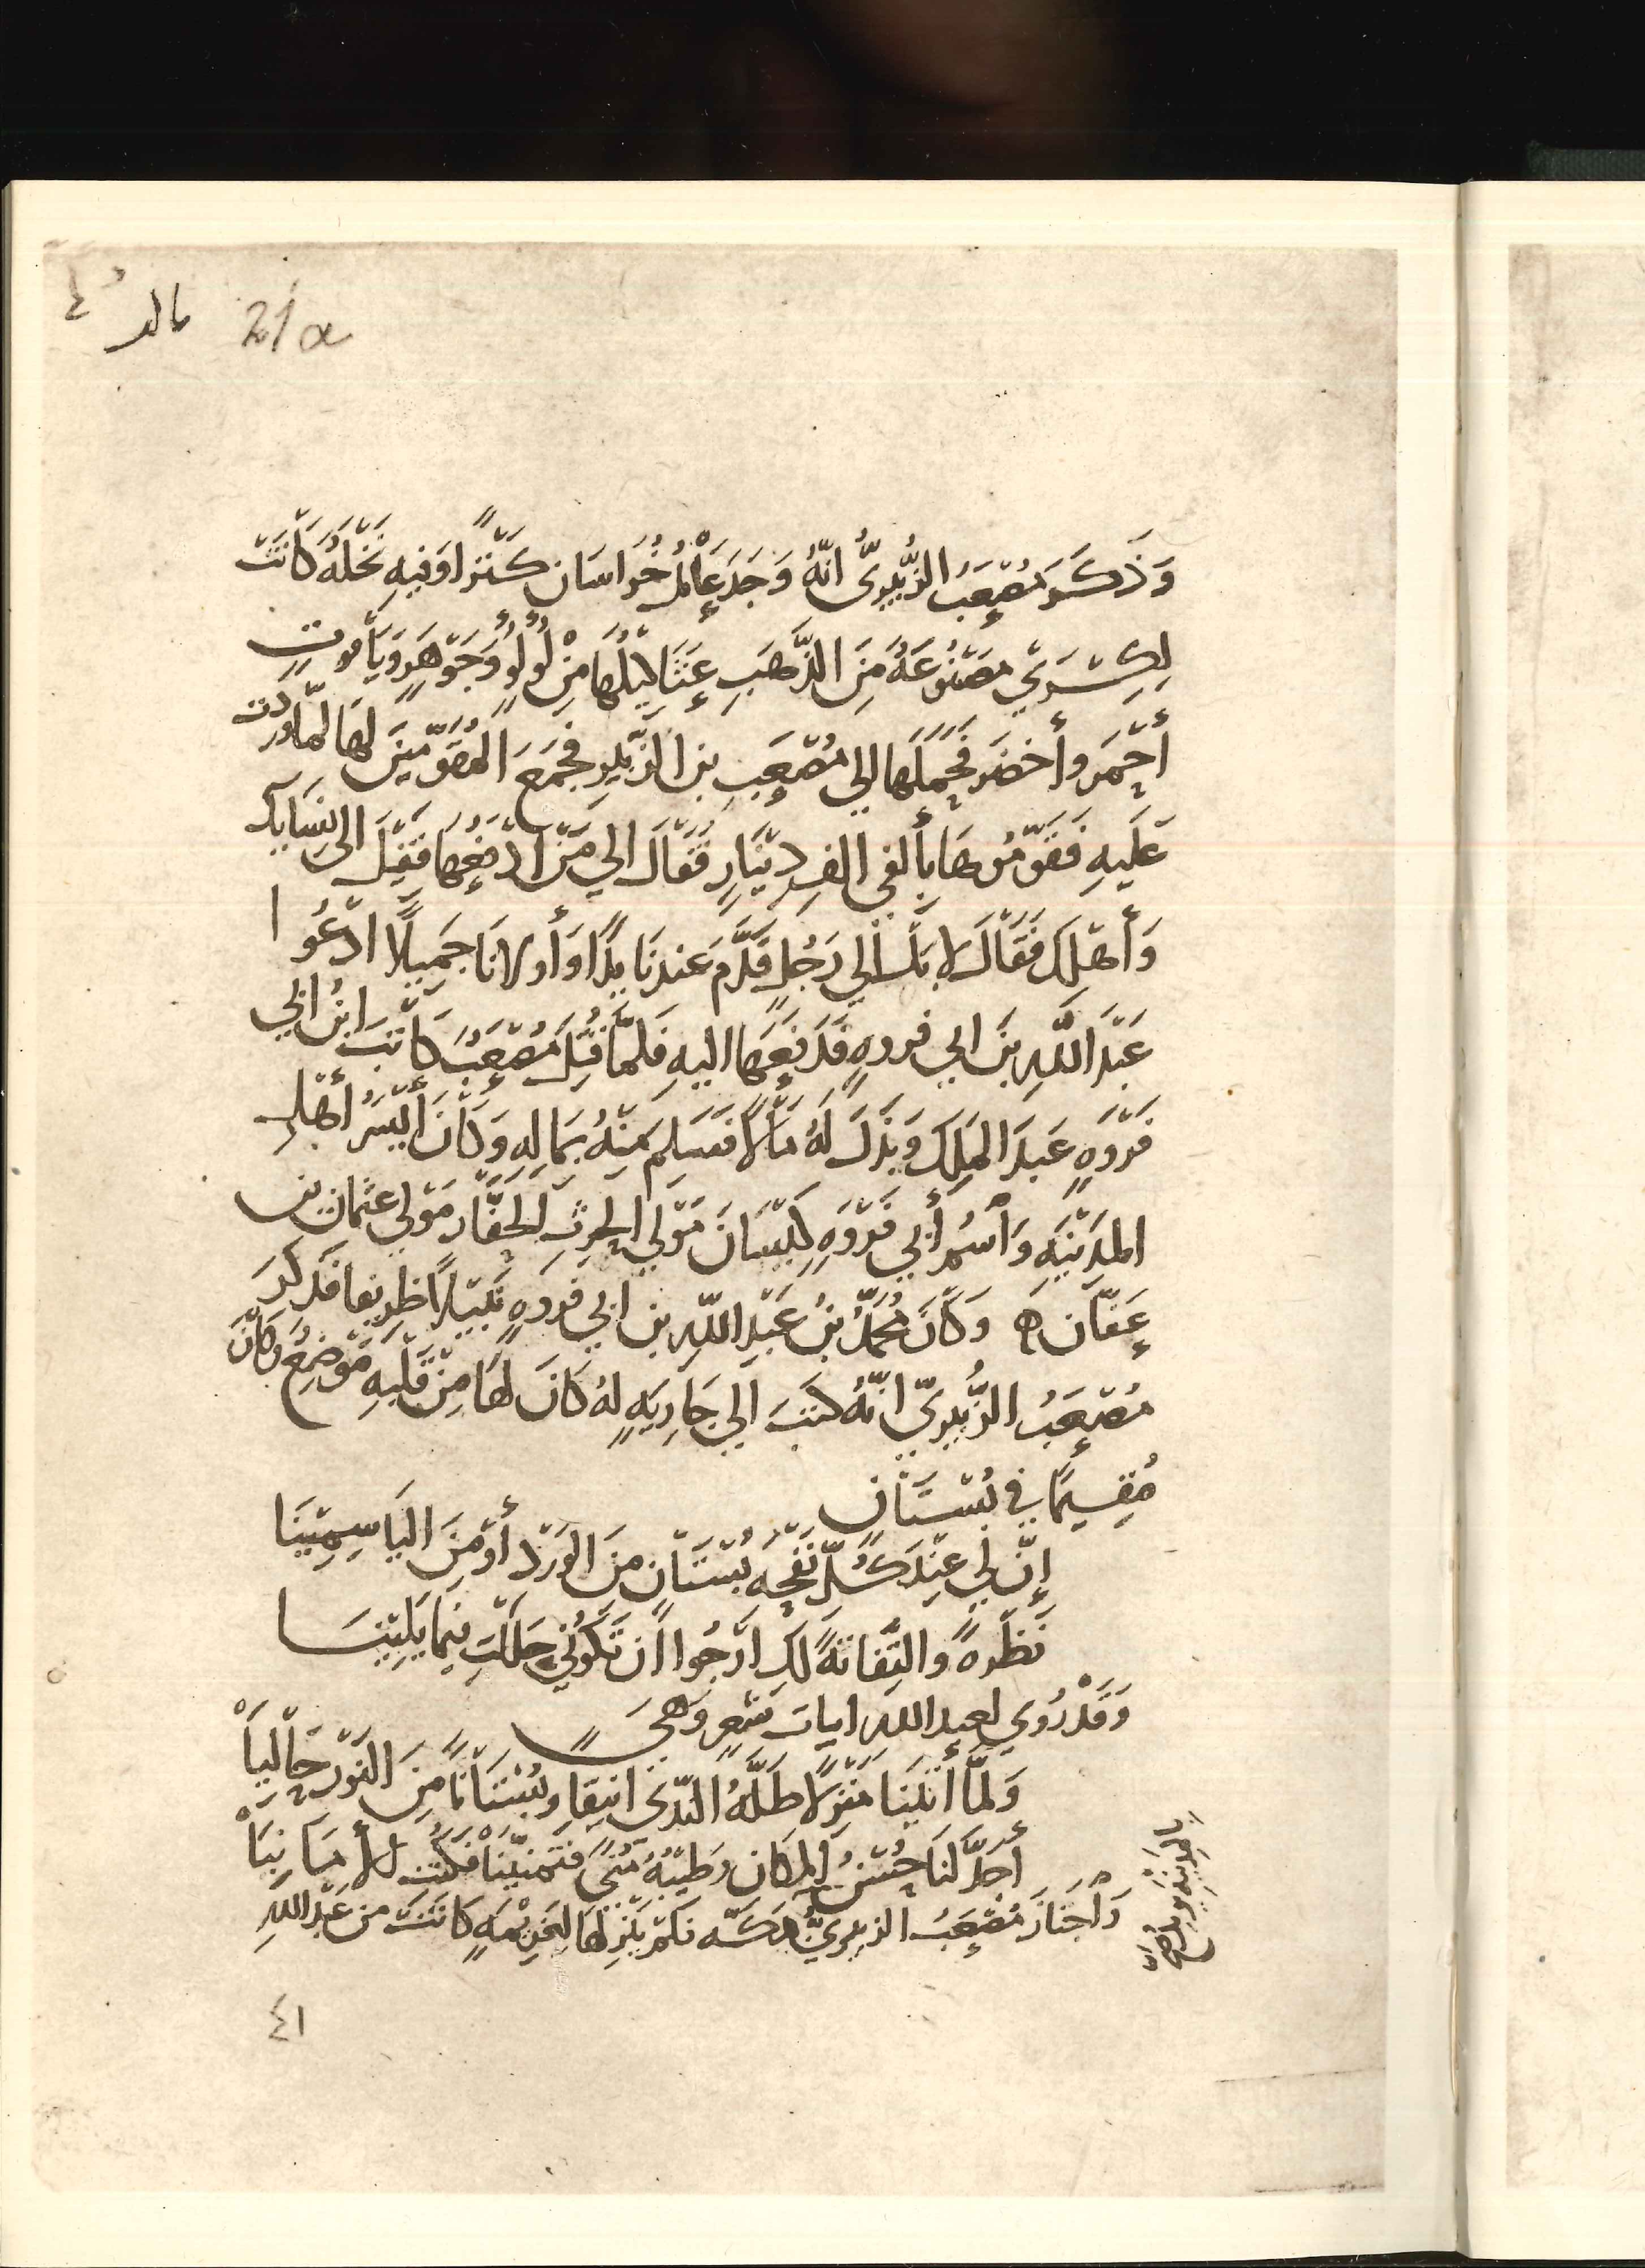 21a
وَذَكَرَ مُصْعَبُ الزُّبَيْرِيُّ أنّهُ وَجَدَ عَامِلُ خُرَاسَان كَنْزًا وَفِيهِ نَخْلَةُ كَانَتْ
لِكِسْرَي مَصْنُوعَةُ مِنَ الذَّهَبِ عَثَاكِيلُهَا مِنْ لُولُوٍ وَجَوْهَرٍ وَيَاقُوتٍ
أَحْمَر وأَخضَر فَحَمَلَهَا الي مُصْعَبِ بن الزّبَيْرِ فجَمَعَ المُقَوّمِينَ لَهَا لمّا وردت
عَلَيهِ فَقَوّمُوهَا بِأَلفي الفِ دِيْنَارٍ فَقَالَ الي مَنْ ادْفَعُهَا فَقِيْلَ الى نِسَايِكَ
وَأَهْلِكَ فَقَالَ لا بَلْ الي رَجُلٍ قَدَّمَ عندنَا يَدًا وَأَولانَا جَمِيلًا ادْعُوا
عَبْدَ اللَّهِ بنَ ابي فروهٍ فَدَفَعَهَا اليهِ فَلمّا قُتِلَ مُصْعَبُ كَاتَبَ ابنُ ابي
فَرْوَهٍ عَبدَ المَلِكِ وَبَذَلَ لَهُ مَالًا فسَلِمَ مِنْهُ بِمَالِهِ وَكَانَ أَيْسَرُ أَهْلِ
المَدِيْنَهِ وَاسْمُ أَبي فَرْوَهٍ كَيْسَانَ مَوْلى الحرِثِ الحَفَّار مَوْلي عثمان بن
عَفّان ه وَكَانَ مُحَمَّدُ بنُ عَبْدِ اللّهِ بن ابي فروهٍ نَبِيْلًا ظَرِيفا فَذَكَرَ
مُصْعَبُ الزُّبَيْرِيّ انّهُ كتبَ الي جَارِيَهٍ لهُ كَانَ لهَا مِنْ قَلْبِهِ مَوْضِعُ وَكَانَ
مُقِيمًا في بُسْتَانٍ
إنّ لي عِنْدَ كُلِّ نَفْحَهِ بُسْتَانٍ مِنَ الوَرْد أَوْ مِنَ اليَاسِمِيْنَا
نَظْرهً والتِفَاتَهً لكِ ارْجُوا أَن تَكُوْنِي حَلَلْتِ فِيمَا يَلِيْنَا
وَقَدْ رُوي لعبدِ اللهِ ابياتَ شِعرٍ وَهيَ
وَلَمَّا أَتَيْنَا مَنْزِلًا طَلَّهُ النّدَى انيقا وبُسْتَانًا مِنَ النَوْرِ حَالِيَا
أَجَدَّ لنَا حُسْنُ المكَان وَطِيْبُهُ مُنىً فتَمنّيْنَا فَكُنْتِ الأَمَانِيَا
وَاجْتَازَ مُصْعَبُ الزبيريُّ بِبِرْكَه فَلَمْ يَنْزِلهَا كَانَتْ مِن عَبْدِ اللهِ
٤١